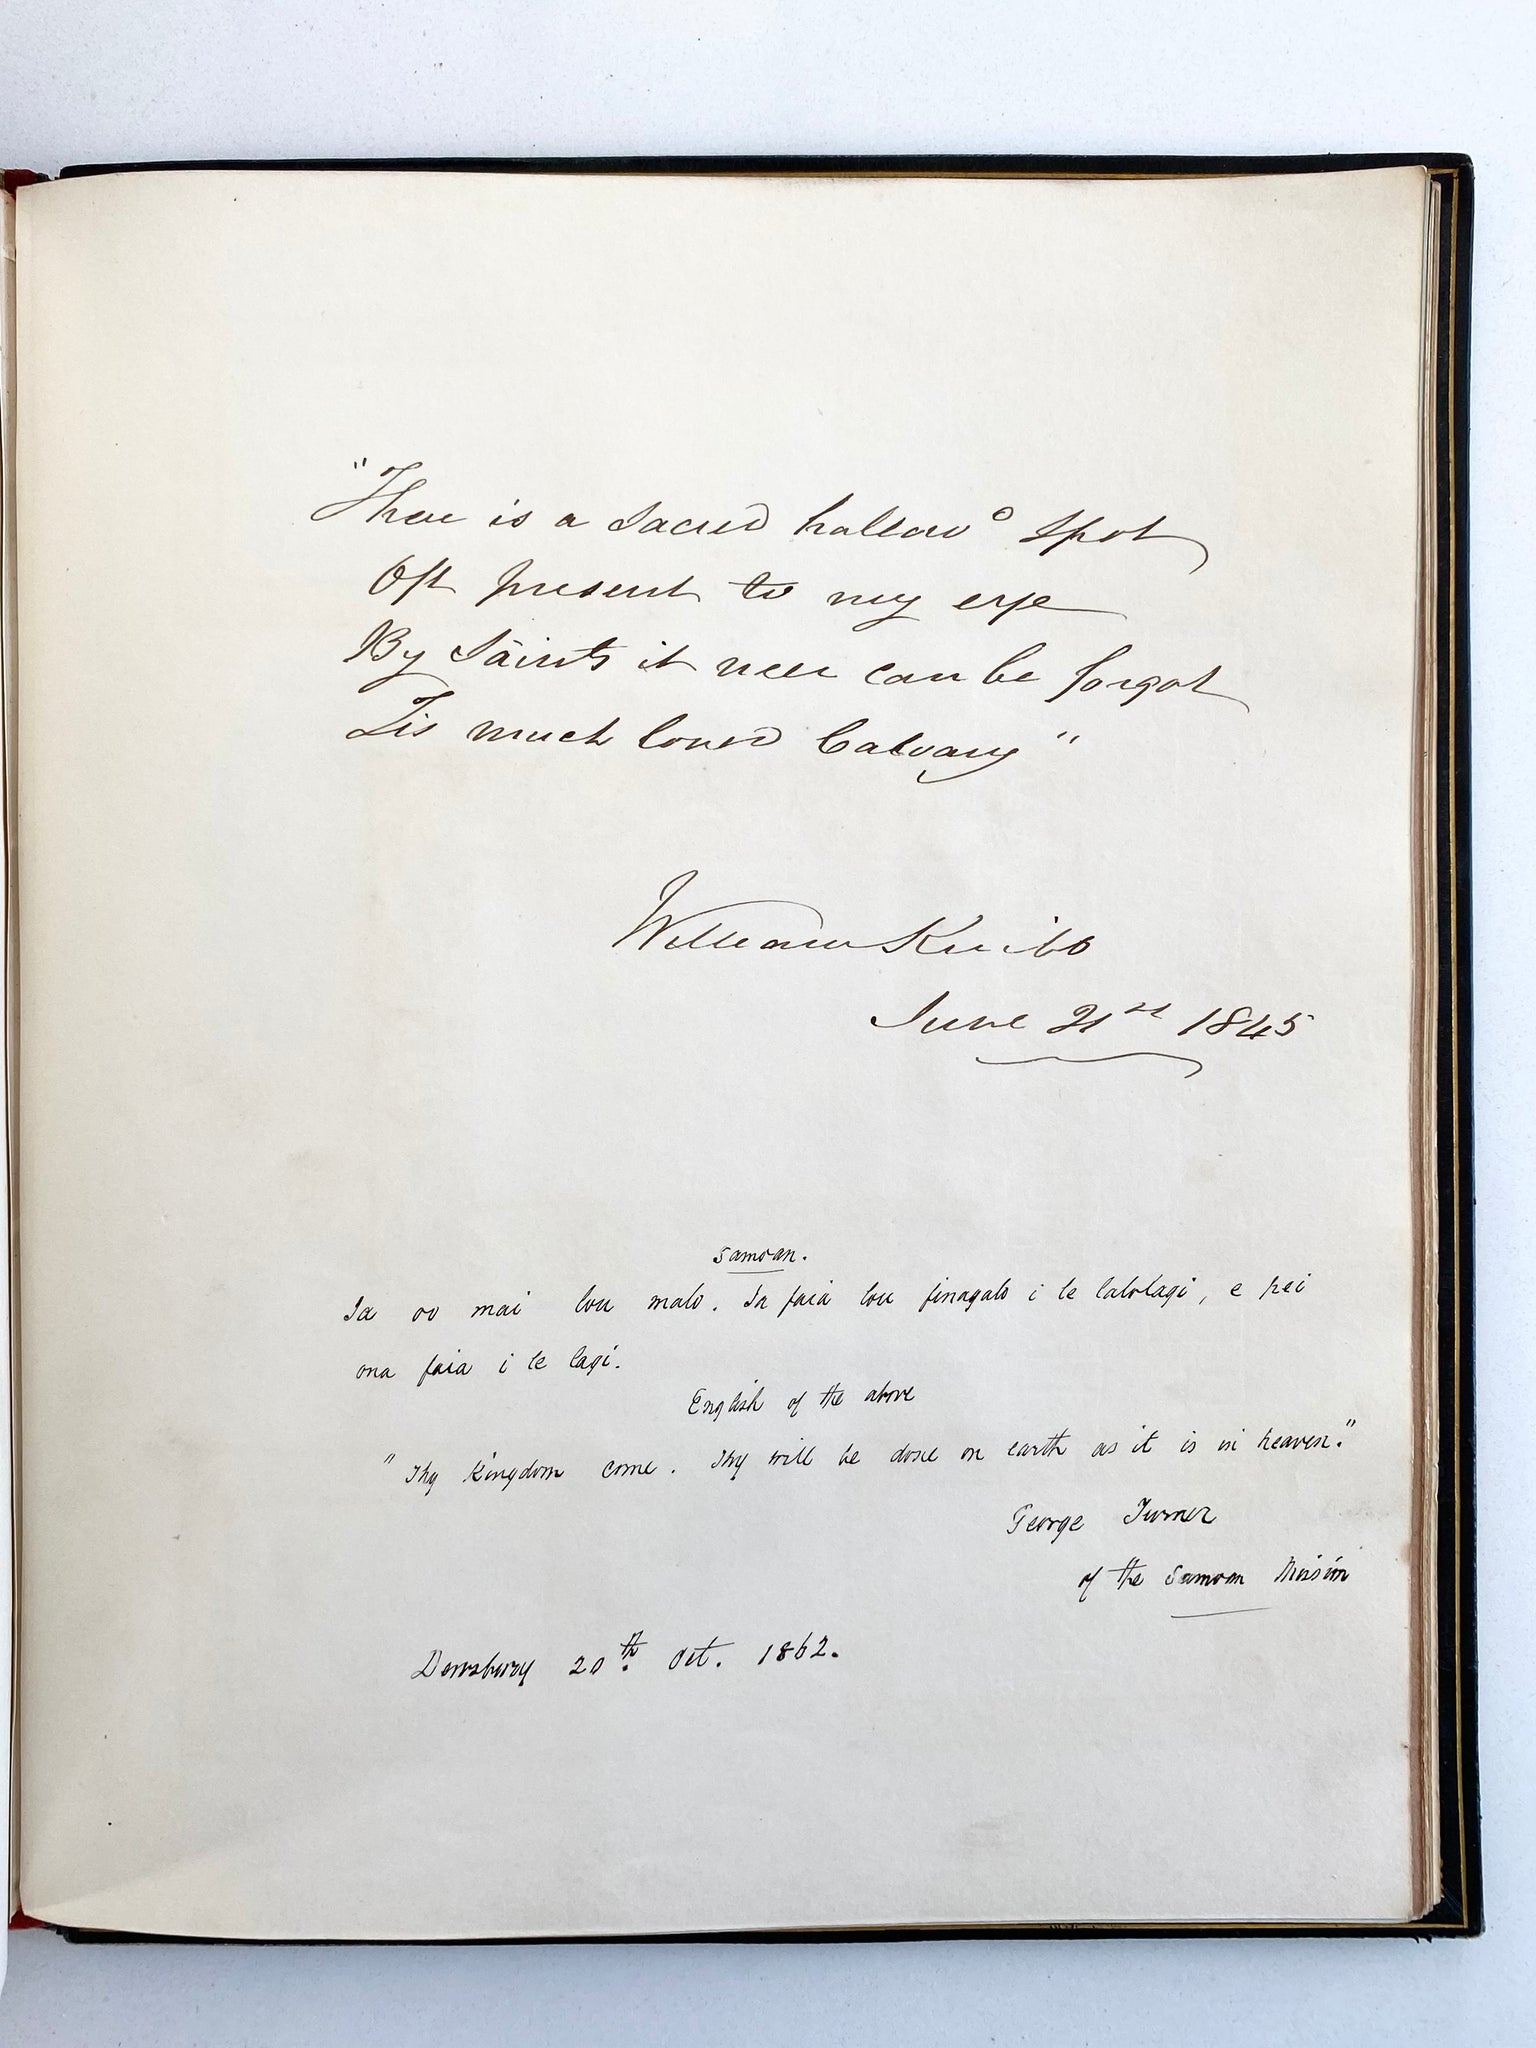 "There is a sacred hallowd spot
Oft present to my eye
By Saints it neer can be forgot
Tis much loved Calvary"
William Knibb
June 21st 1845
Samoan.
Ia oo mai lou malo. Ia faia lou finagalo i le lalolagi, e pei
ona faia i le lagi.
English of the above
"Thy Kingdom come. Thy will be done on earth as it is in heaven."
George Turner
of the Samoan Mission
Dewsbury 20th. Oct. 1862.